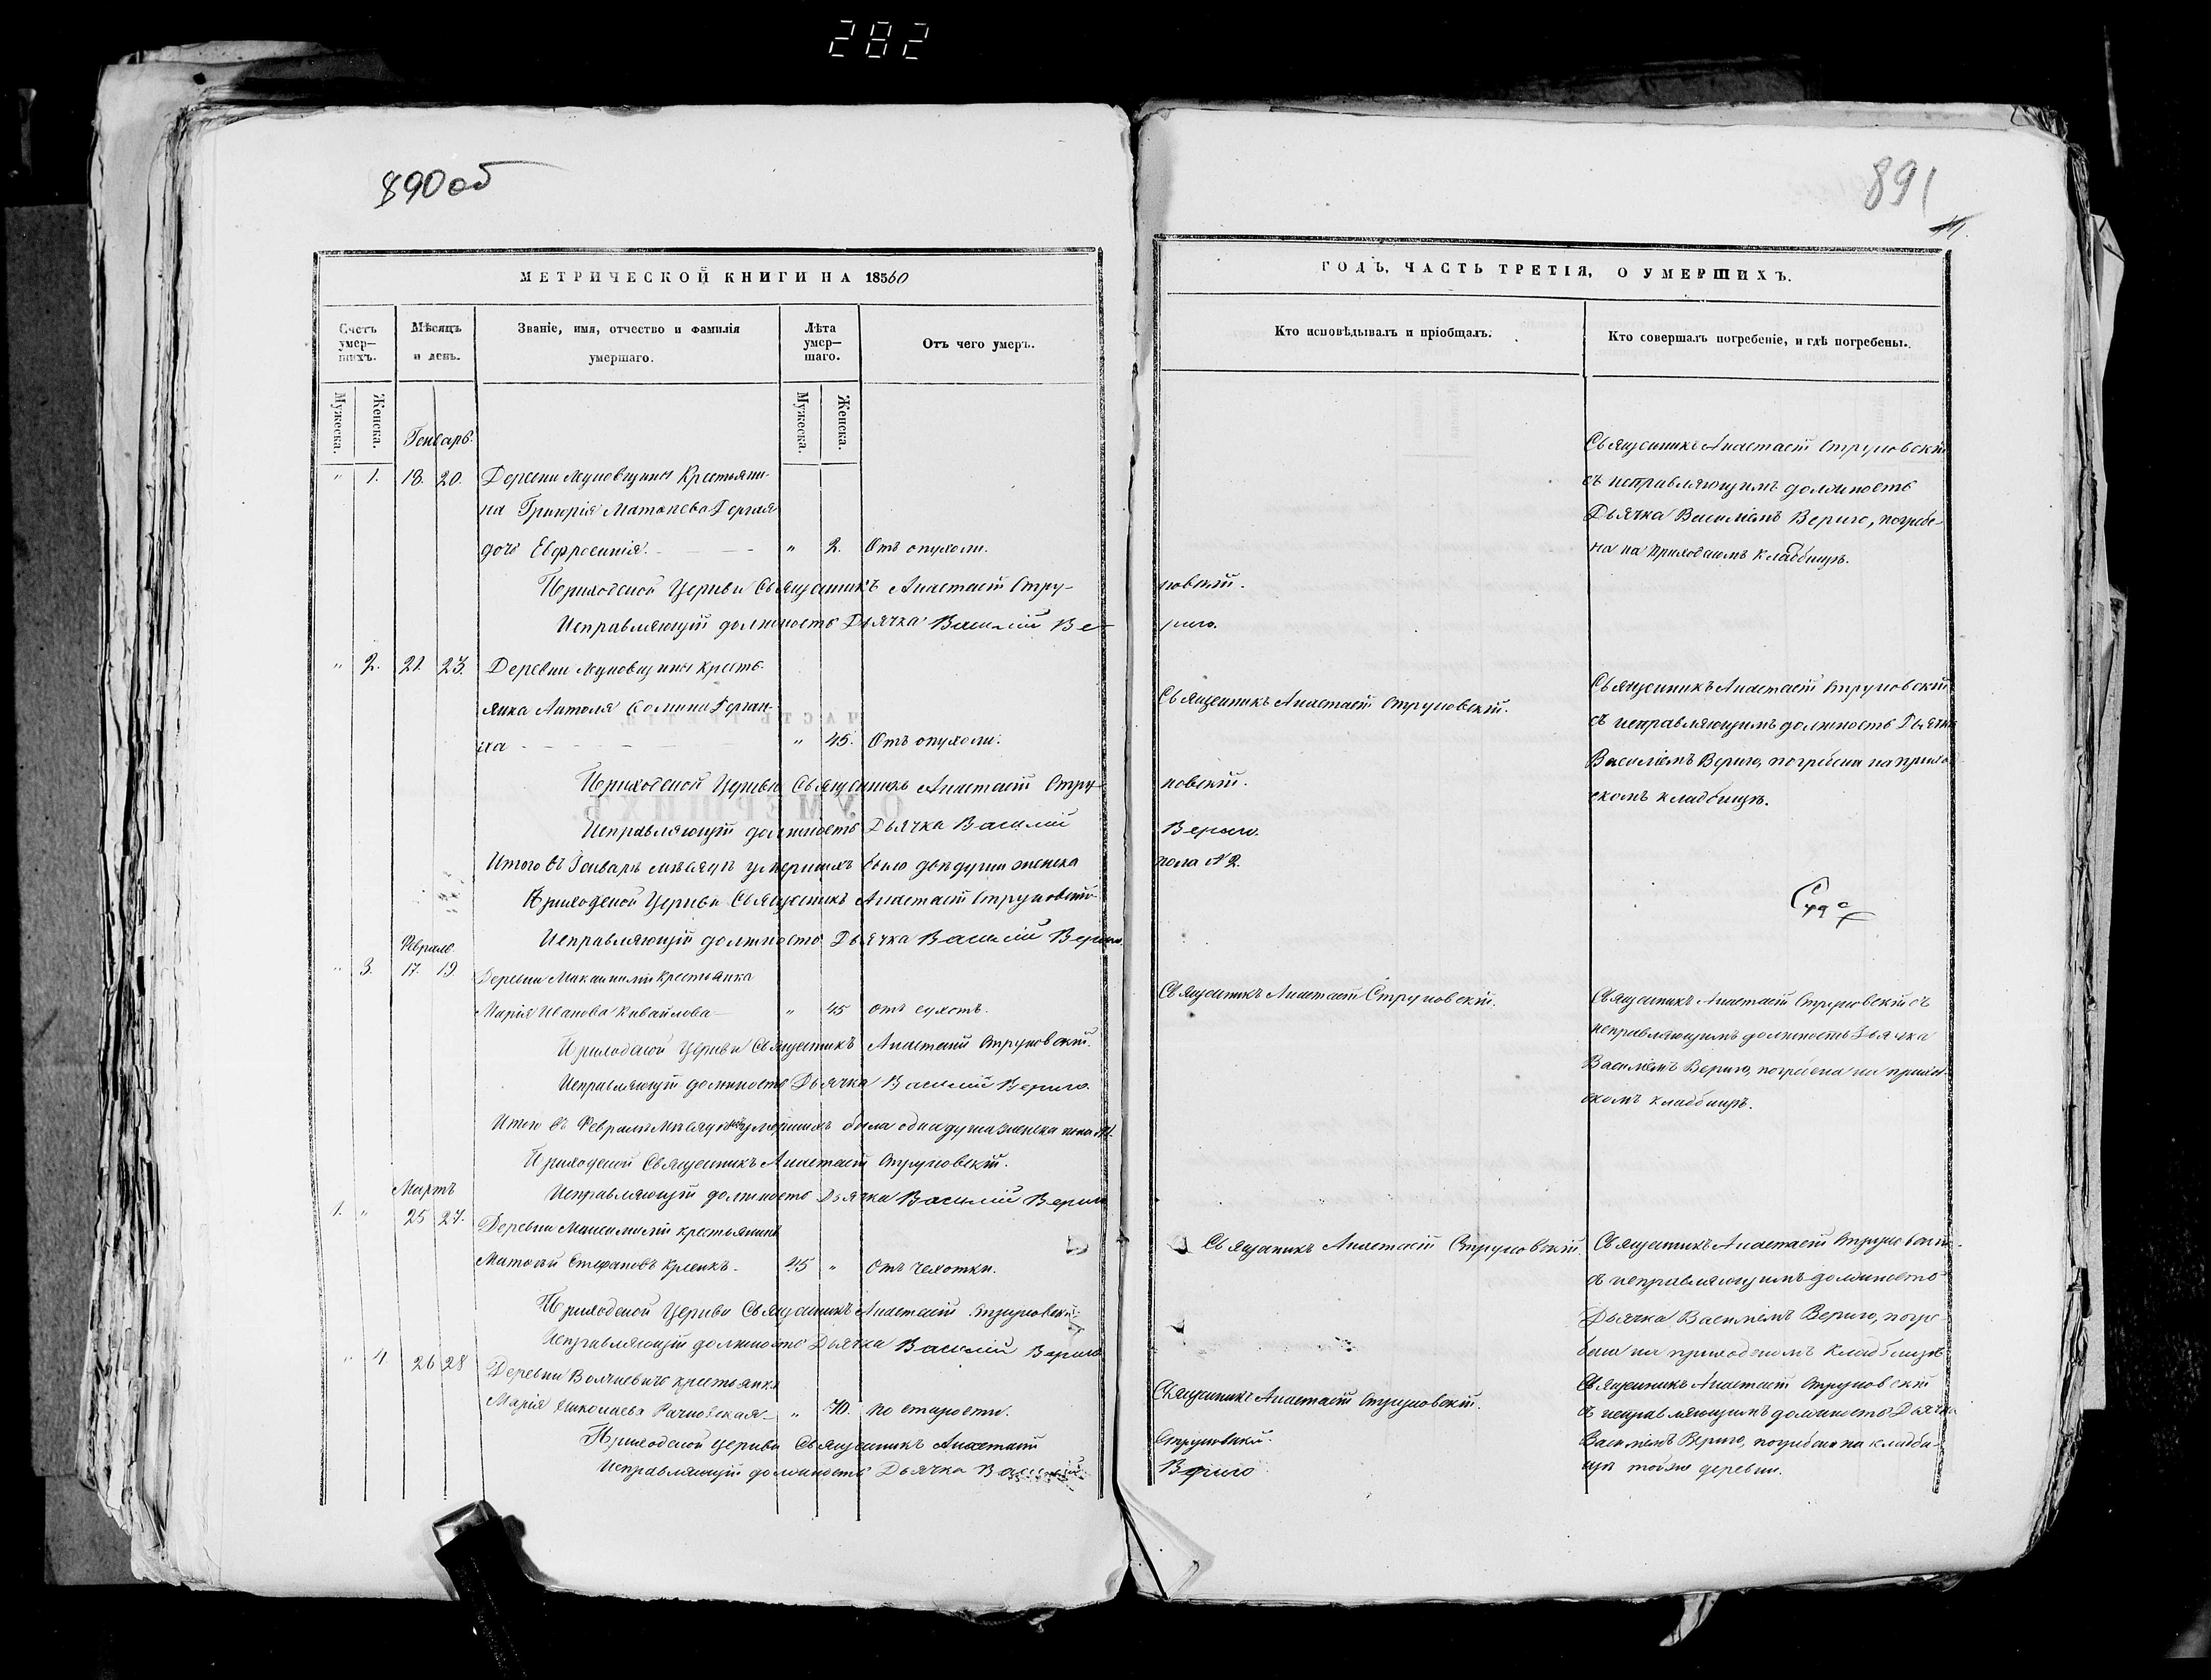 282
890 об
891
МЕТРИЧЕСКОЙ КНИГИ НА 18560
Счетъ умер-шихъ.
Мѣсяцъ и день.
Званіе, имя, отчество и фамилія умершаго.
Лѣта умер-шаго.
Отъ чего умеръ.
Мужеска.
Женска.
Мужеска.
Женска.
Генварь.
" 1. 18. 20. Деревни крестьяни-
на Григорія Матѳеева
дочь Евфросинія. " 2. Отъ опухоли.
Приходской Церкви Священникъ Анастасій Стру-
Исправляющій должность Дьячка Василій Ве-
" 2. 21. 23. Деревни кресть-
янка
" 45. Отъ опухоли.
Приходской Церкви Священникъ Анастасій Стру-
Исправляющій должность Дьячка Василій
Итого въ Генварѣ мѣсяцѣ умершихъ было двѣ души женска
Приходской Церкви Священникъ Анастасій Струповскій
Исправляющій должность Дьячка Василій Вериго.
Февраль
" 3. 17. 19. Деревни крестьянка
Марія Иванова " 45 отъ сухотъ.
Приходской Церкви Священникъ Анастасій Струповскій.
Исправляющій должность Дьячка Василій Вериго.
Итого въ Февралѣ мѣсяцѣ умершихъ была одна душа женска пола №1.
Приходской Священникъ Анастасій Струповскій.
Исправляющій должность Дьячка Василій Вериго
Мартъ
1. " 25 27. Деревни крестьянинъ
Матѳей Стефановъ 45 " Отъ чехотки.
Приходской Церкви Священникъ Анастасій Струповскій.
Исправляющій должность Дьячка Василій Вериго
" 4 26 28 Деревни крестьянка
Марія Николаева " 70. по старости.
Приходской церкви Священникъ Анастасій
Исправляющій должность Дьячка Василій
ГОДЪ, ЧАСТЬ ТРЕТІЯ, О УМЕРШИХЪ.
Кто исповѣдывалъ и пріобщалъ.
Кто совершалъ погребеніе, и гдѣ погребены.
повскій.
риго.
Священникъ Анастасій Струповскій.
повскій.
Вериго.
пола №2.
Священникъ Анастасій Струповскій.
Священникъ Анастасій Струповскій.
Священникъ Анастасій Струповскій.
Струповскій.
Вериго
Священникъ Анастасій Струповскій
съ исправляющимъ должность
Дьячка Василіемъ Вериго, погребе-
на на приходскомъ кладбищѣ.
Священникъ Анастасій Струповскій
съ исправляющимъ должность Дьячка
Василіемъ Вериго, погребена на прихо
скомъ кладбищѣ.
Священникъ Анастасій Струповскій съ
исправляющимъ должность Дьячка
Василіемъ Вериго, погребена на прихо
скомъ кладбищѣ.
Священникъ Анастасій Струповскій
съ исправляющимъ должность
Дьячка Василіемъ Вериго, погре-
бенъ на приходскомъ кладбищѣ
Священникъ Анастасій Струповскій
съ исправляющимъ должность Дьячка
Василіемъ Вериго, погребена на кладби-
щѣ той же деревни.